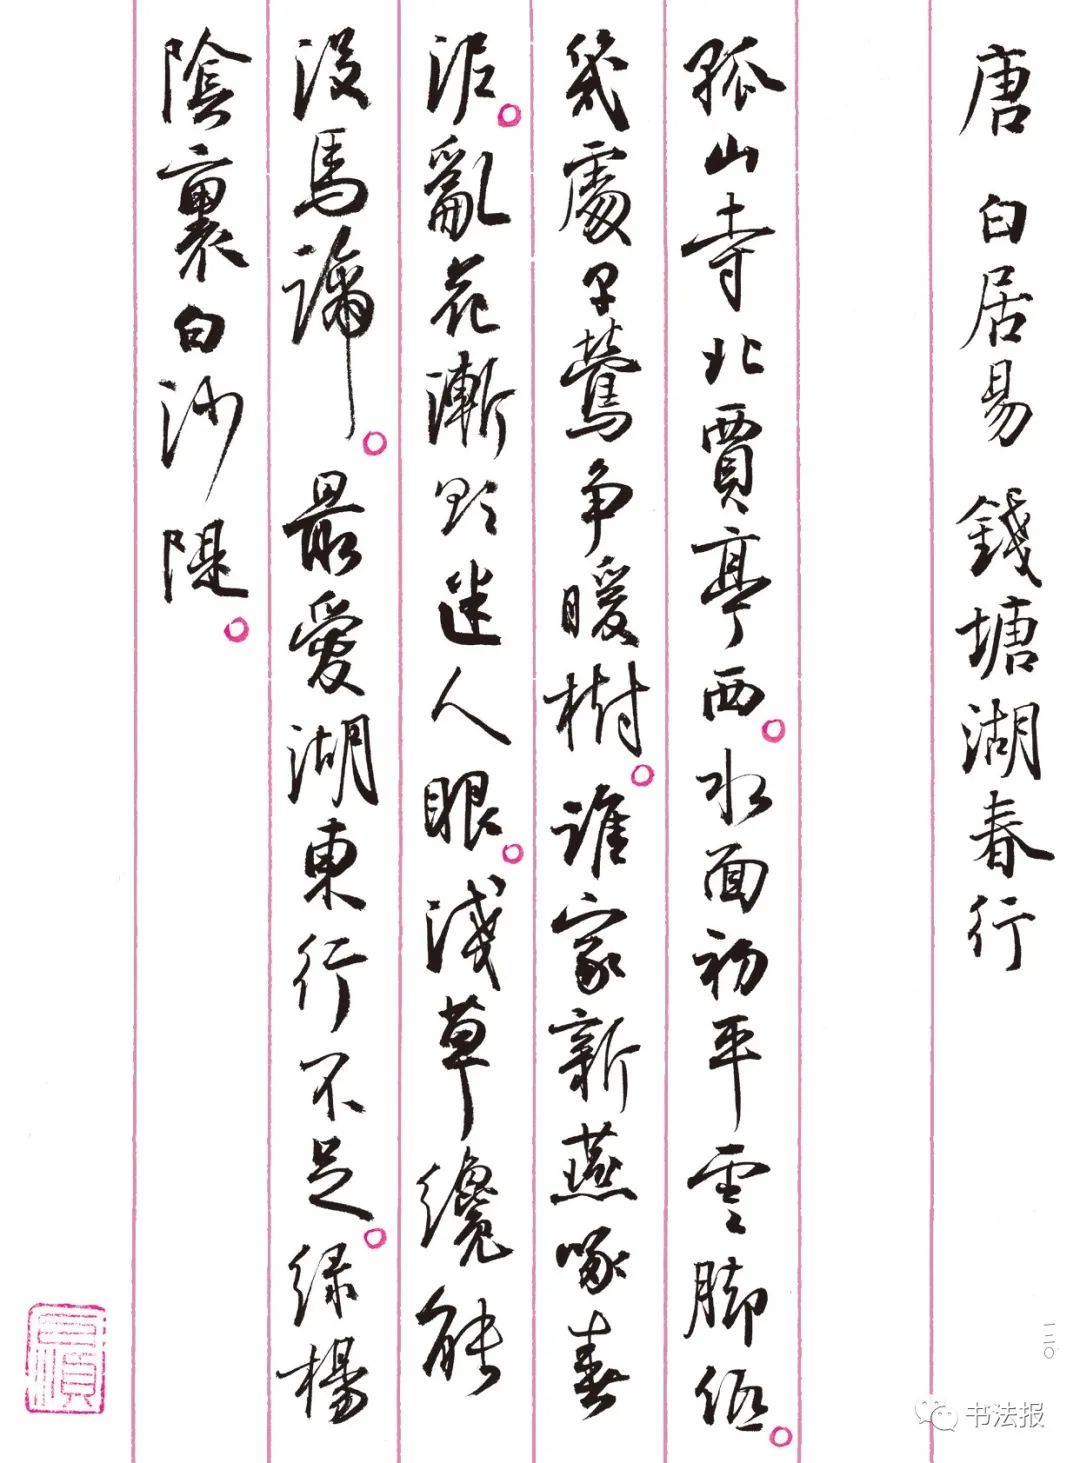 唐 白居易 錢塘湖春行
孤山寺北賈亭西。水面初平雲脚低。
幾處早鶯争暖樹。誰家新燕啄春
泥。亂花漸欲迷人眼。淺草纔能
沒馬蹄。最愛湖東行不足。绿楊
陰裏白沙隄。
一二〇
书法报